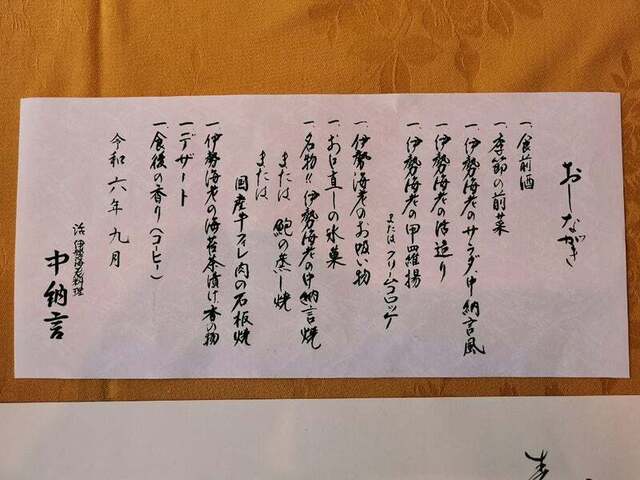 おしながき
一、食前酒
一、季節の前菜
一、伊勢海老のサラダ、中納言風
一、伊勢海老の活造り
一、伊勢海老の甲羅揚
またはクリームコロッケ
一、伊勢海老のお吸い物
一、お口直しの氷菓
一、名物!!伊勢海老の中納言焼
または 鮑の蒸し焼
または 国産牛フィレ肉の石板焼
一、伊勢海老の海苔茶漬け香の物
一、デザート
一、食後の香り(コーヒー)
令和六年九月
活伊勢海老料理
中納言